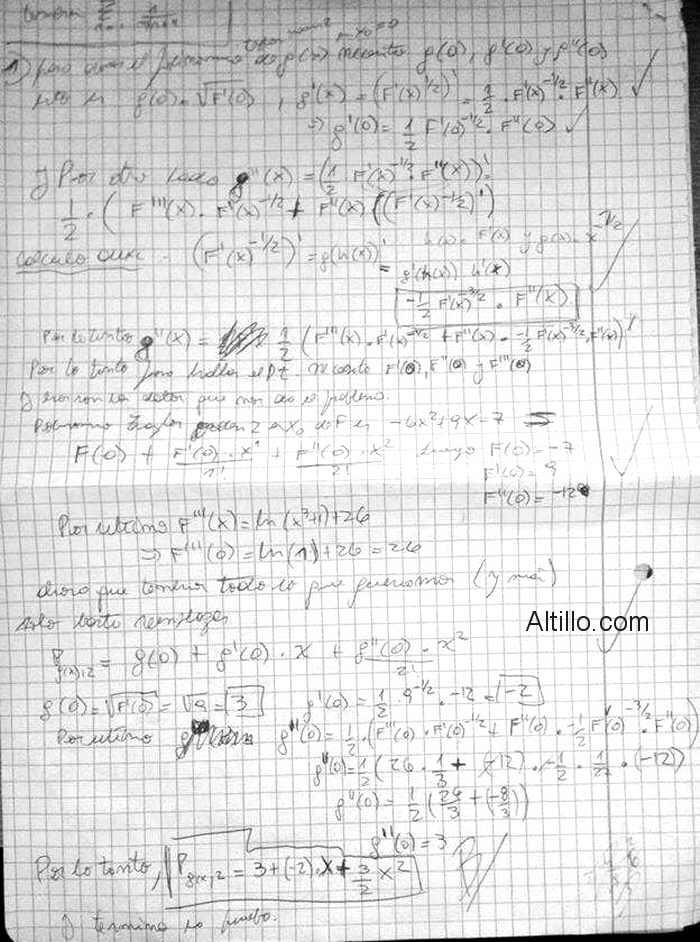 1) para armar el polinomio de g(x) necesito g(0), g'(0) y g''(0)
g(0) = √F'(0) , g'(x) = (F'(x)^1/2)' = 1/2 · F'(x)^-1/2 · F''(x)
⇒ g'(0) = 1/2 F'(0)^-1/2 · F''(0)
y Por otro lado g''(x) = (1/2 F'(x)^-1/2 · F''(x))' =
1/2 · (F'''(x) · F'(x)^-1/2 + F''(x) ((F'(x)^-1/2)')
calculo aux. (F'(x)^-1/2)' = g(h(x))' h(x) = F'(x) y g(x) = x^-1/2
= g'(h(x)) h'(x)
-1/2 F'(x)^-3/2 · F''(x)
Por lo tanto g''(x) = 1/2 (F'''(x) · F'(x)^-1/2 + F''(x) · -1/2 F'(x)^-3/2 · F''(x))
Por lo tanto para hallar el necesito F'(0), F''(0) y F'''(0)
que nos da el problema.
Polinomio Taylor orden 2 x₀ de F es -6x²+9x-7
F(0) + F'(0) · x¹/1! + F''(0) · x²/2! Luego F(0) = -7
F'(0) = 9
F''(0) = -12
Por ultimo F'''(x) = ln(x³+1)+26
⇒ F'''(0) = ln(1)+26 = 26
ahora que tenemos todo lo que queriamos (y más)
solo basta reemplazar
P g(x),2 = g(0) + g'(0) · x + g''(0) · x²/2!
g(0) = √F'(0) = √9 = 3 g'(0) = 1/2 · 9^-1/2 · -12 = -2
Por ultimo g''(0) = 1/2 · (F'''(0) · F'(0)^-1/2 + F''(0) · -1/2 F'(0)^-3/2 · F''(0))
g''(0) = 1/2 (26 · 1/3 + (-12) · -1/2 · 1/27 · (-12))
g''(0) = 1/2 (26/3 + (-8/3))
g''(0) = 3
Por lo tanto, P g(x),2 = 3 + (-2) · x + 3/2 x²
y termina la prueba.
B
Altillo.com